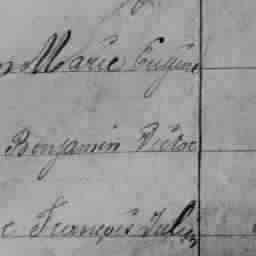 Marie Eugène
Benjamin Victor
François Julien